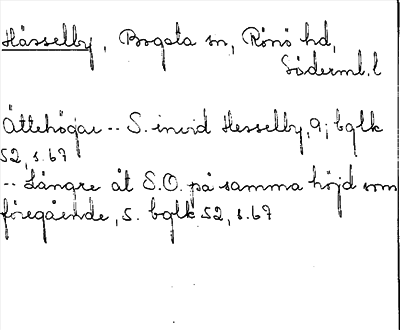 Hässelby, Bogsta sn, Rönö hd,
Söderml. l
Ättehögar -- S. invid Hesselby, 9; bglk
52, s. 67
-- Längre åt S.O. på samma höjd som
föregående, 5. bglk 52, s. 67